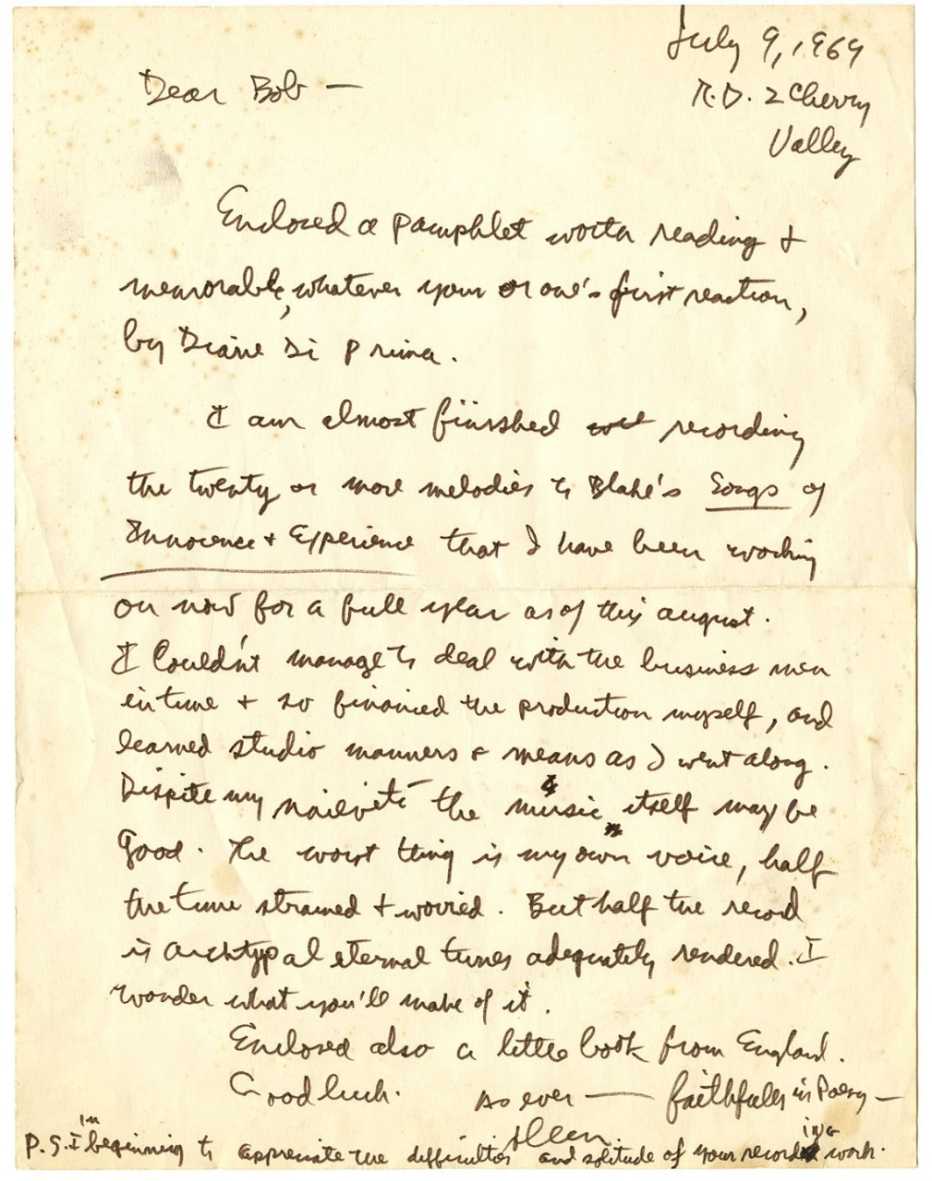 July 9, 1969
R.D. 2 Cherry
Valley
Dear Bob —
Enclosed a pamphlet worth reading &
memorable, whatever your or one's first reaction,
by Diane Di Prima.
I am almost finished recording
the twenty or more melodies to Blake's Songs of
Innocence & Experience that I have been working
on now for a full year as of this august.
I Couldn't manage to deal with the business men
in time & so financed the production myself, and
learned studio manners & means as I went along.
Dispite my naiveté the music itself may be
Good. The worst thing is my own voice, half
the time strained & worried. But half the record
is archtypal eternal tunes adequately rendered. I
wonder what you'll make of it.
Enclosed also a little book from England.
Good luck. As ever — faithfully in Poesy —
Allen
P.S. I'm beginning to appreciate the difficulties and solitude of your recording work.